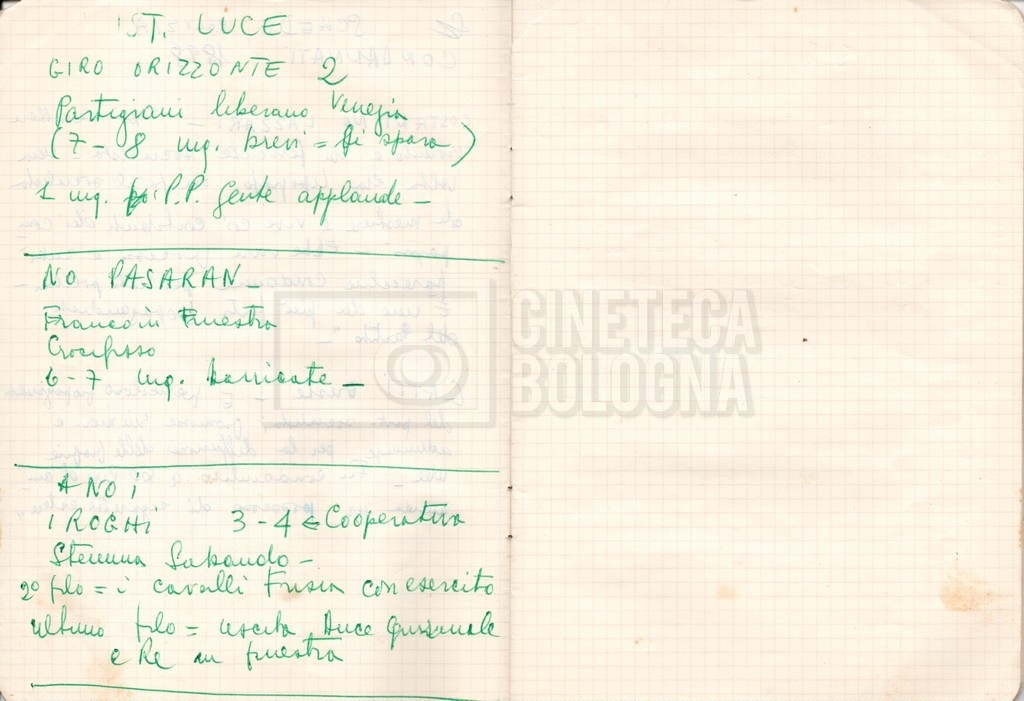 IST. LUCE
GIRO ORIZZONTE 2
Partigiani liberano Venezia
(7-8 inq. brevi = Si spara)
1 inq. P.P. Gente applaude -
NO PASARAN -
Franco in Finestra
Crocifisso
6-7 inq. barricate -
A NOI
I ROGHI 3-4 Cooperativa
Stemma Sabaudo -
2° filo = i cavalli Frisia con esercito
ultimo filo = uscita Duce Quirinale
e Re in finestra
CINETECA
BOLOGNA